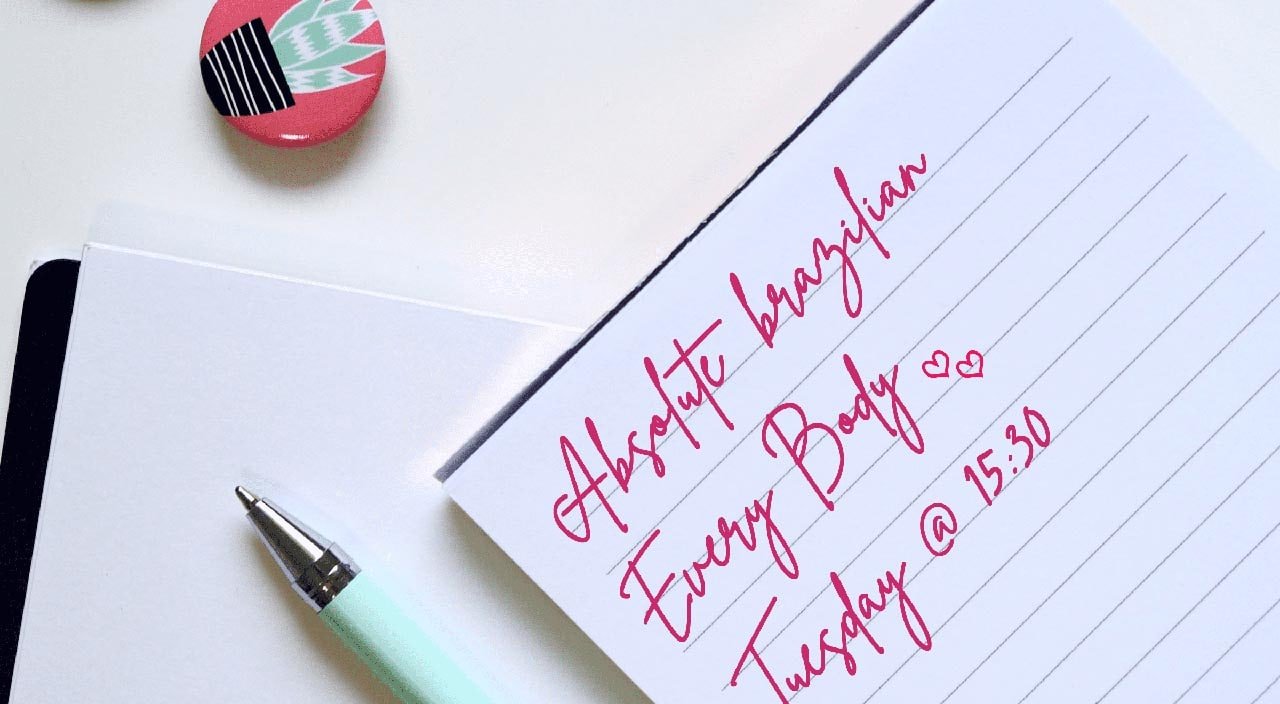 Absolute brazilian
Every Body ♡♡
Tuesday @ 15:30